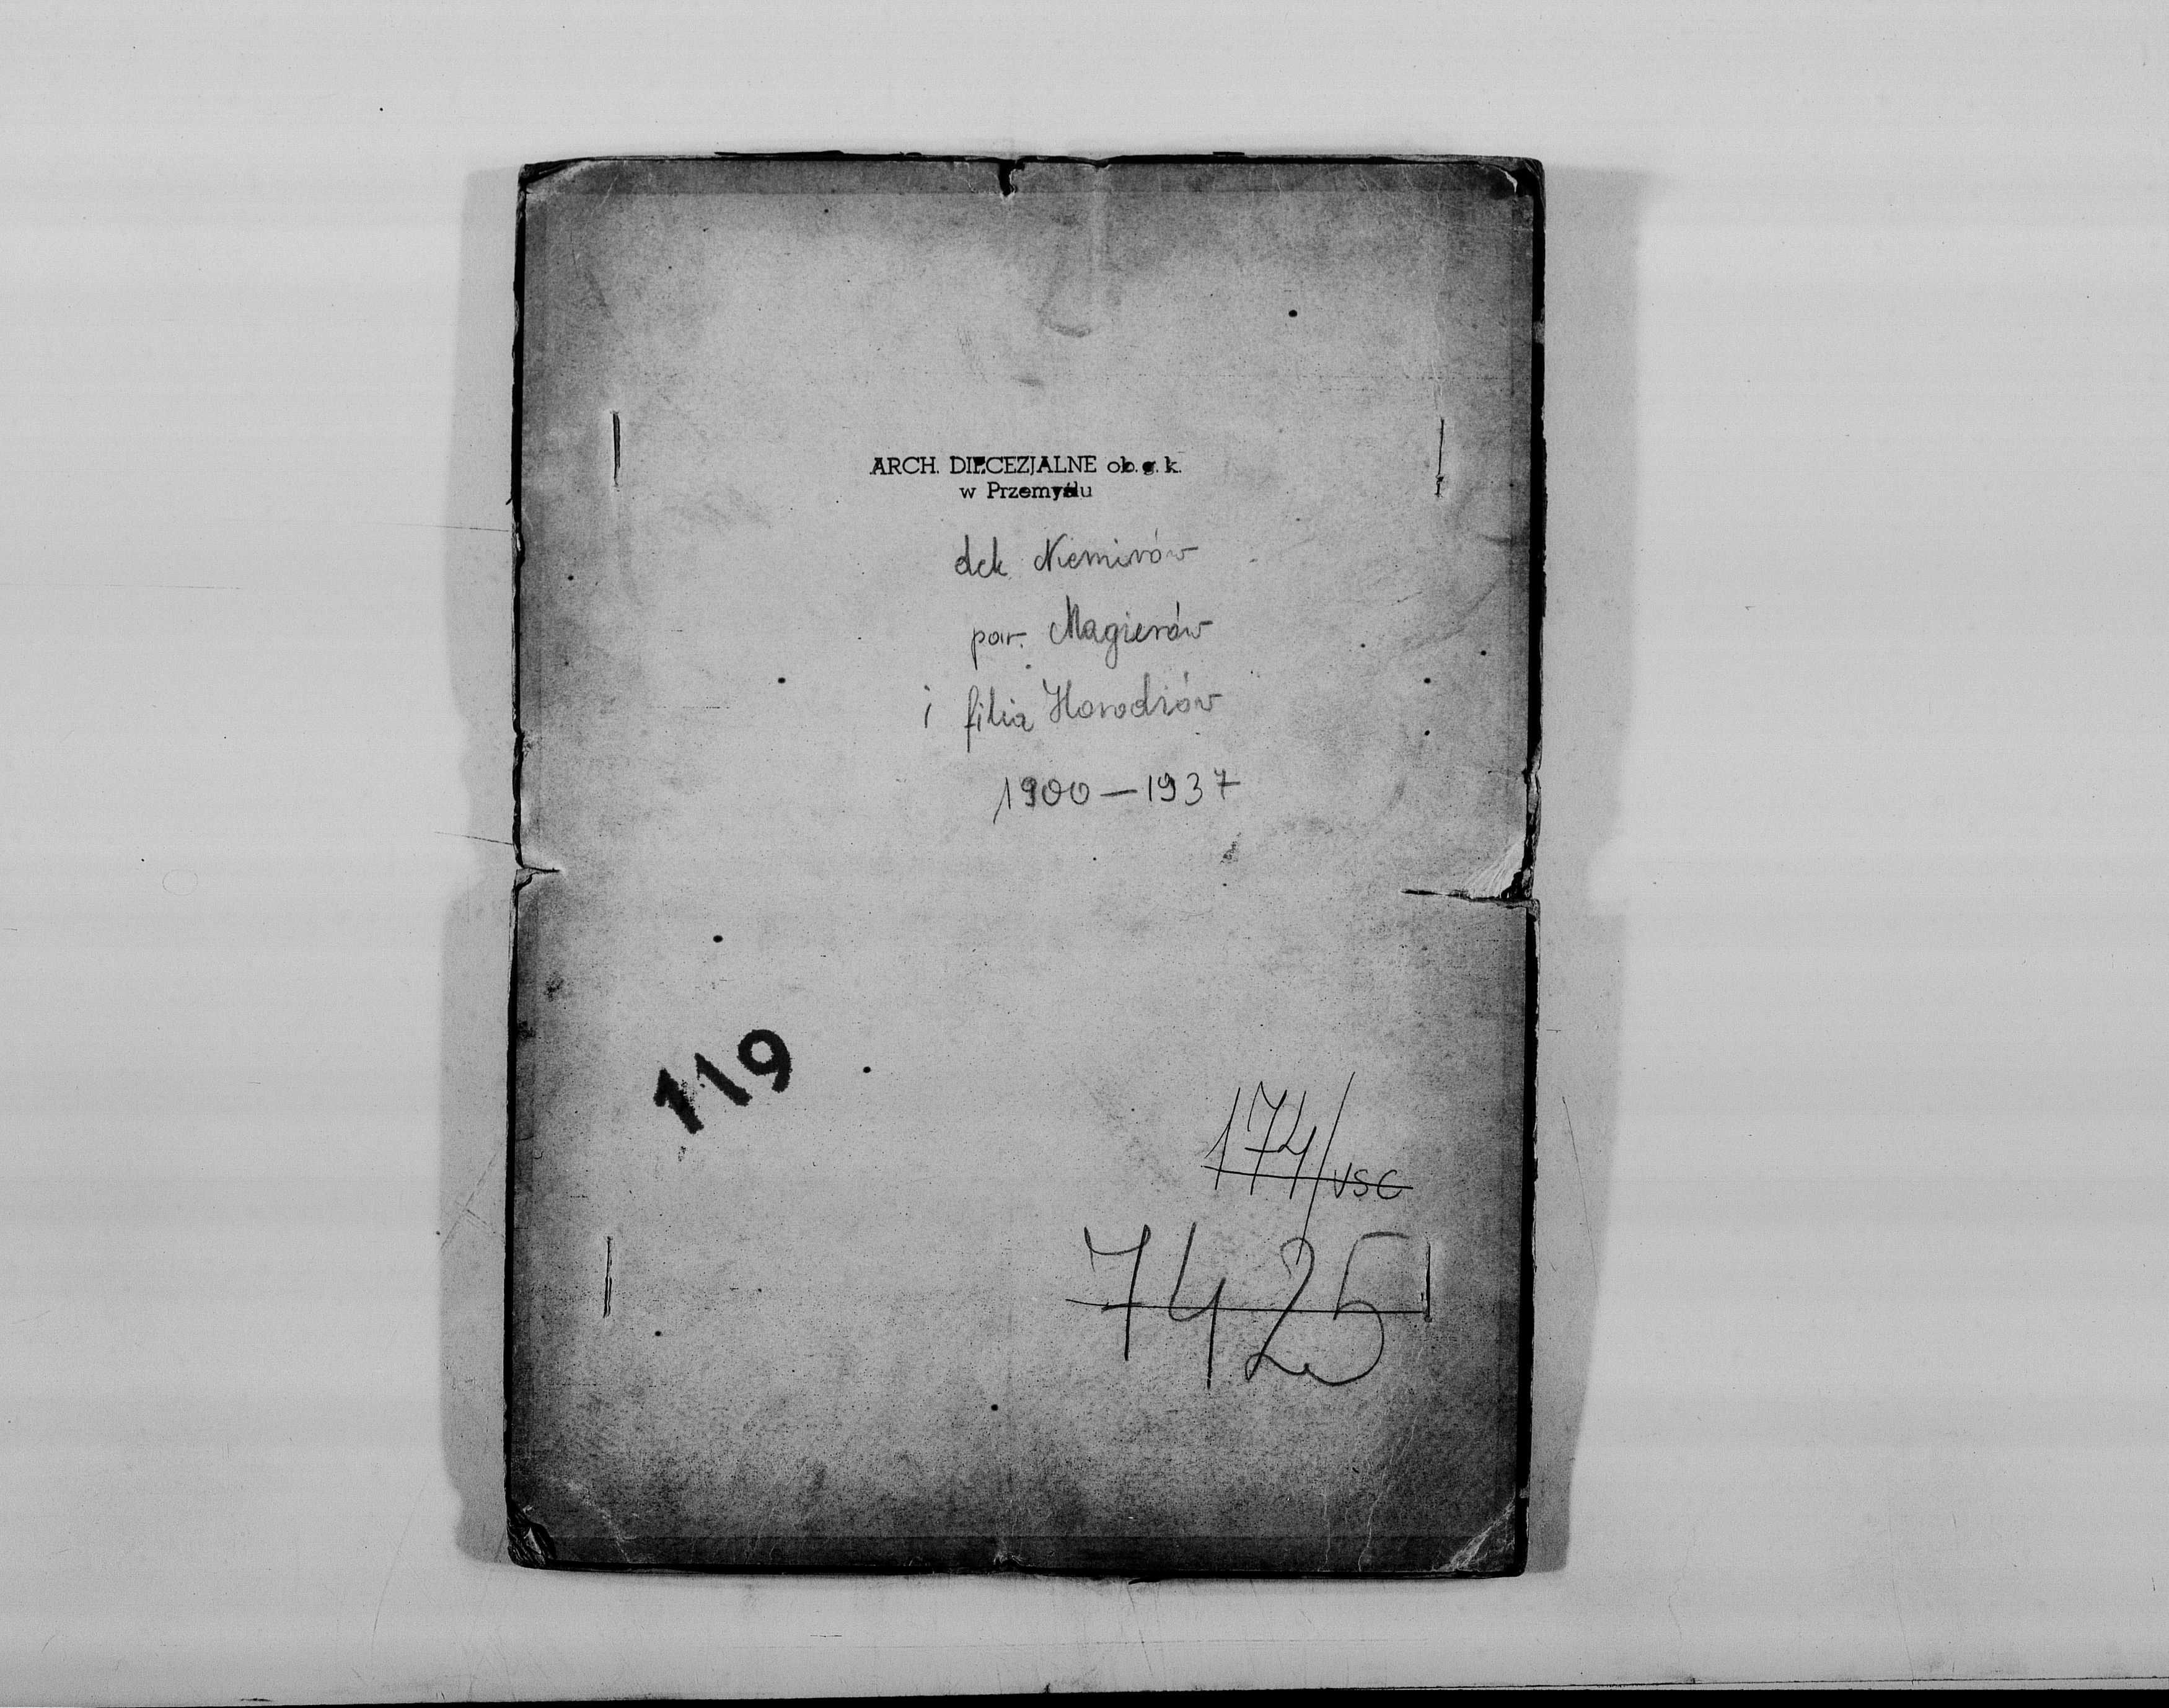 ARCH. DIECEZJALNE ob. g. k.
w Przemyślu
dek Niemirów
par. Magierów
i filia Horodzów
1900 – 1937
119
174/USC
7425